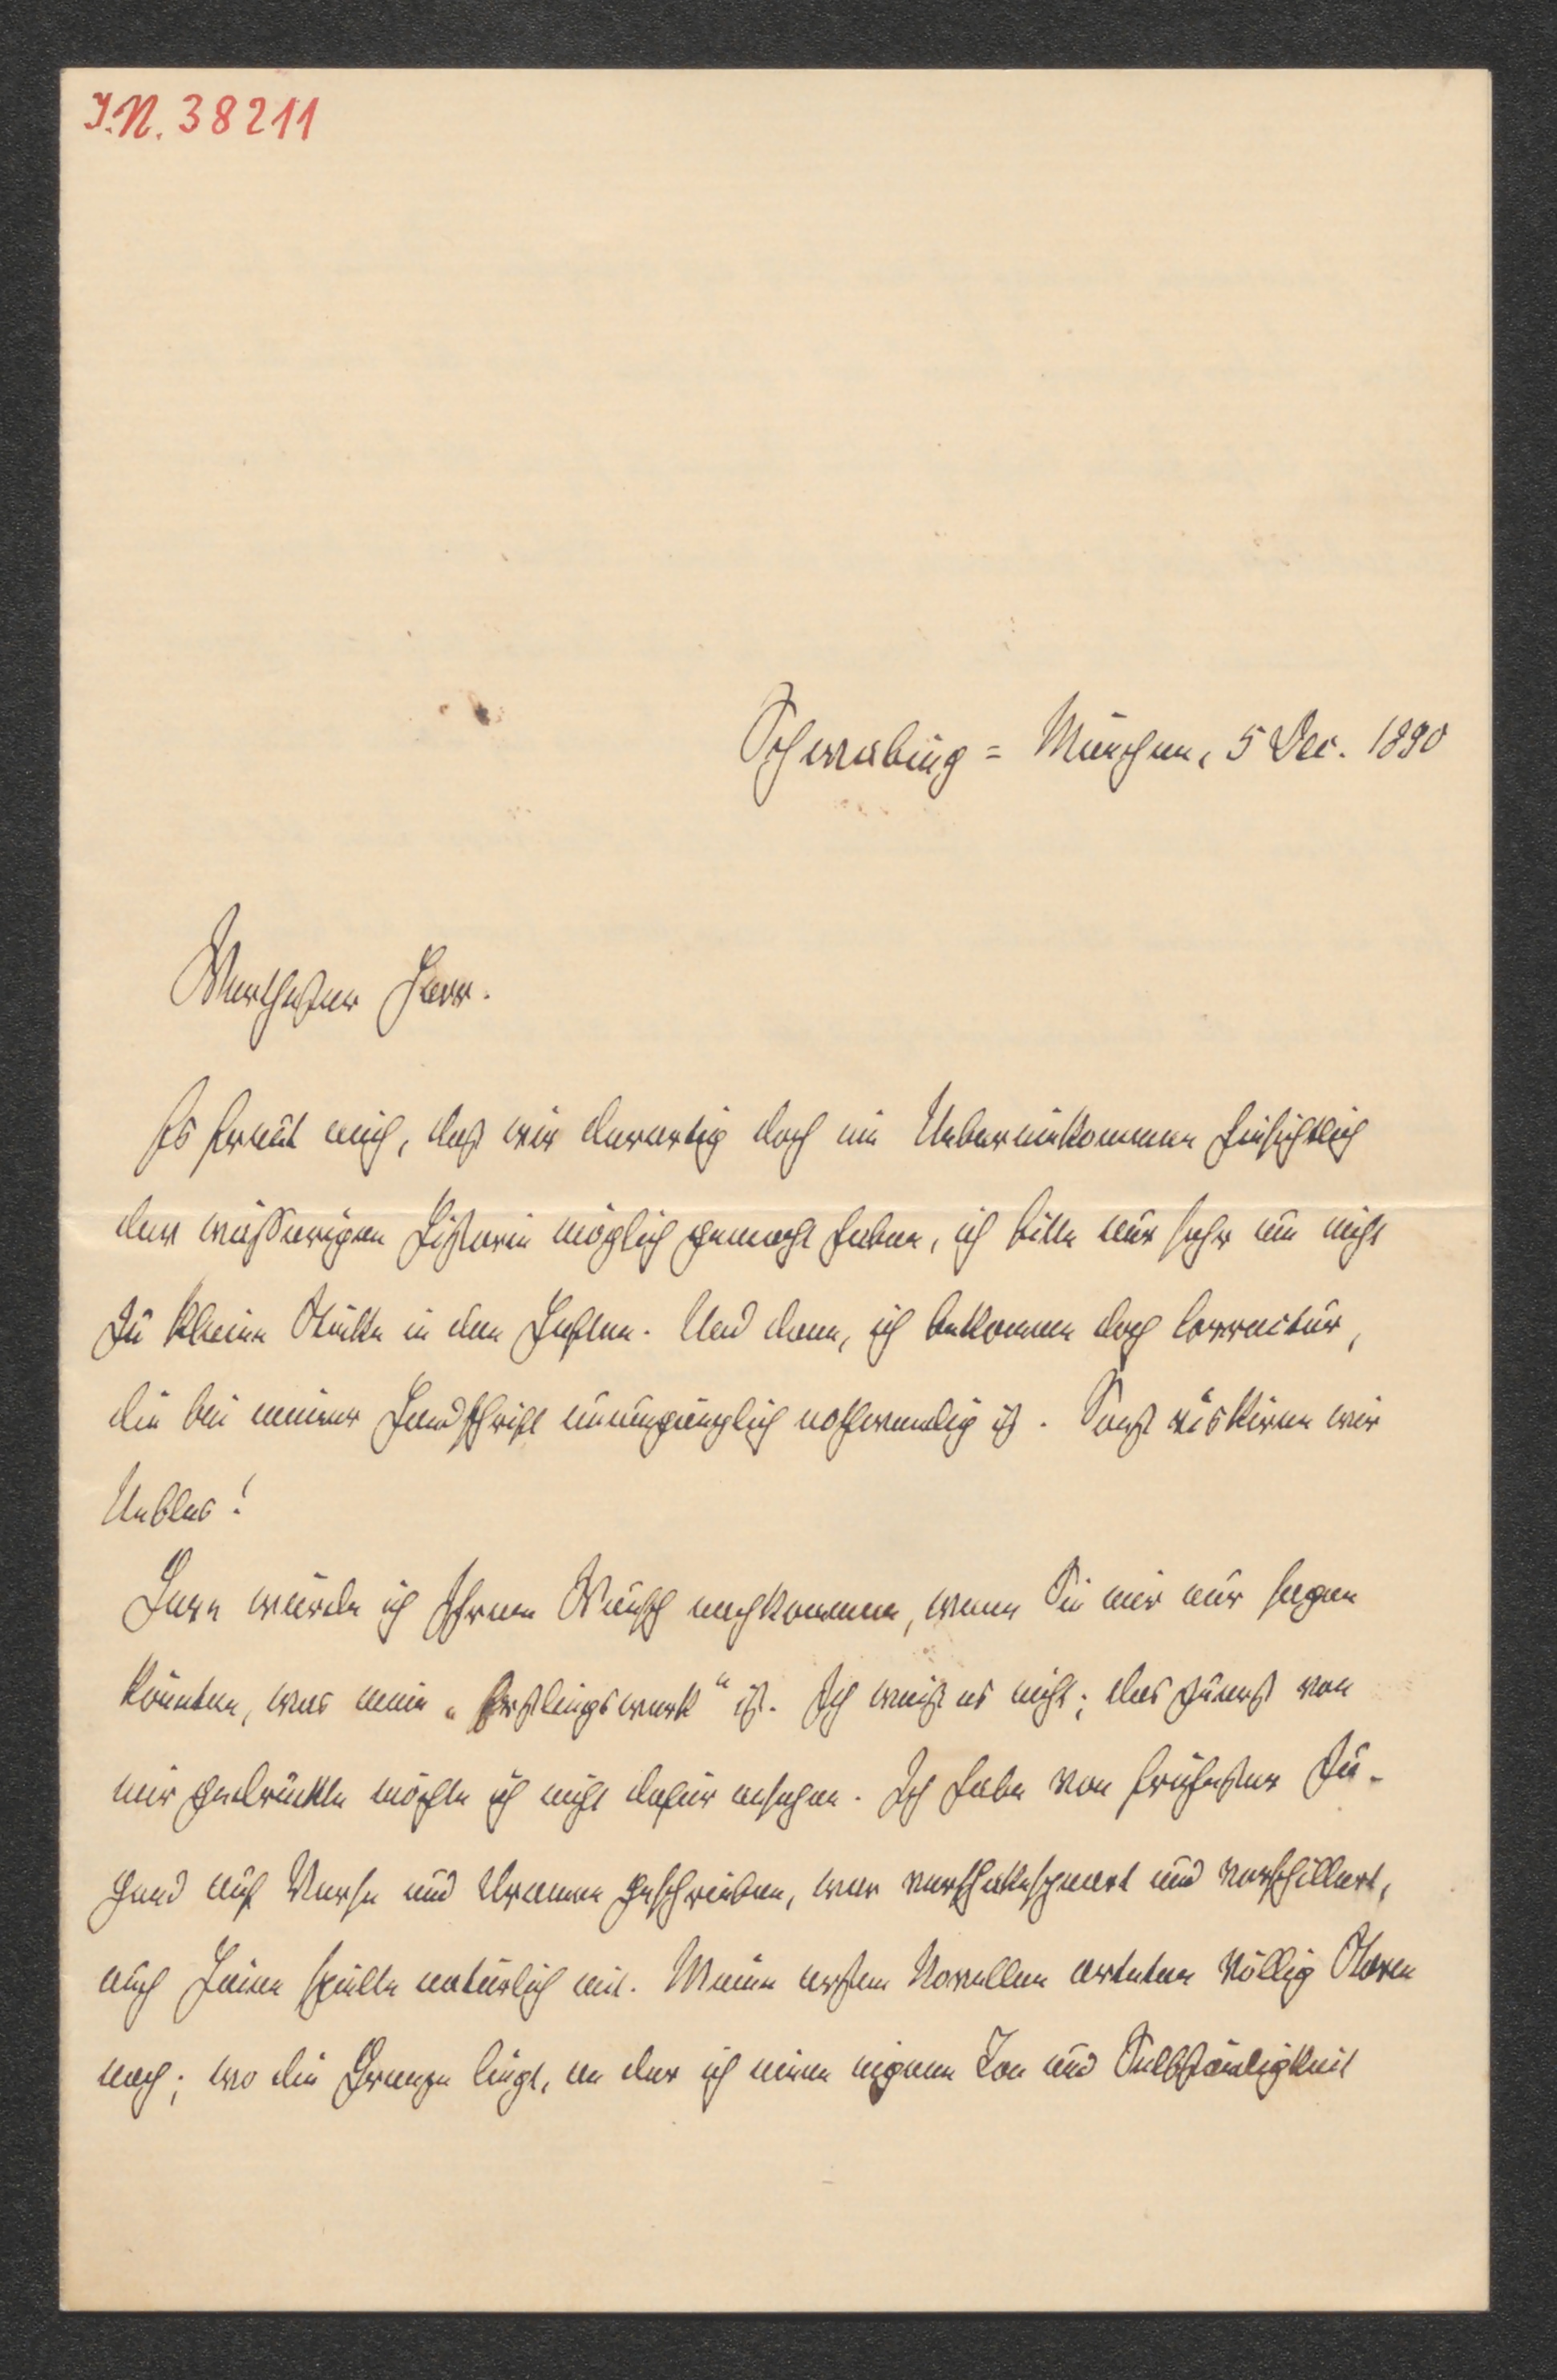 I.N. 38211
Schwabing = München, 5 Dec. 1890
Werthester Herr.
Es freut mich, daß wir derartig doch ein Uebereinkommen hinsichtlich
der wässerigen Historie möglich gemacht haben, ich bitte nur sehr um nicht
zu kleine Stücke in den Heften. Und dann, ich bekomme doch Correctur,
die bei meiner Handschrift unumgänglich nothwendig ist. Sonst riskiren wir
Uebles!
Gern würde ich Ihrem Wunsch nachkommen, wenn Sie mir nur sagen
könnten, was mein „Erstlingswerk“ ist. Ich weiß es nicht; das zuerst von
mir gedruckte möchte ich nicht dafür ansehen. Ich habe von frühester Ju-
gend auf Verse und Dramen geschrieben, war vershakespeart und verschillert,
auch Heine spielte natürlich mit. Meine ersten Novellen arteten völlig Storm
nach; wo die Grenze liegt, an der ich einen eigenen Ton und Selbständigkeit